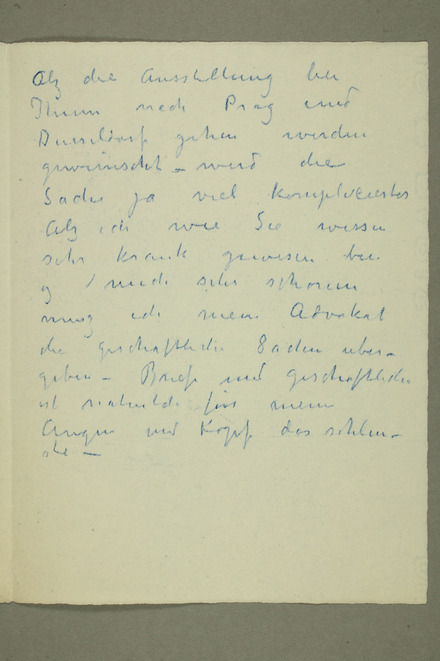 Alz die Ausstellung bei
Ihnen nach Prag und
Dusseldorf gehen werden
gewünscht – wird die
Sache ja viel komplizierter
Alz ich wie Sie wissen
sehr krank gewesen bin
mich sehr schonen
muss ich mein Advokat
die geschaftliche Sachen uber-
geben – Brief und geschaftliche
ist für mein
Augen und Kopf das schlim-
ste –